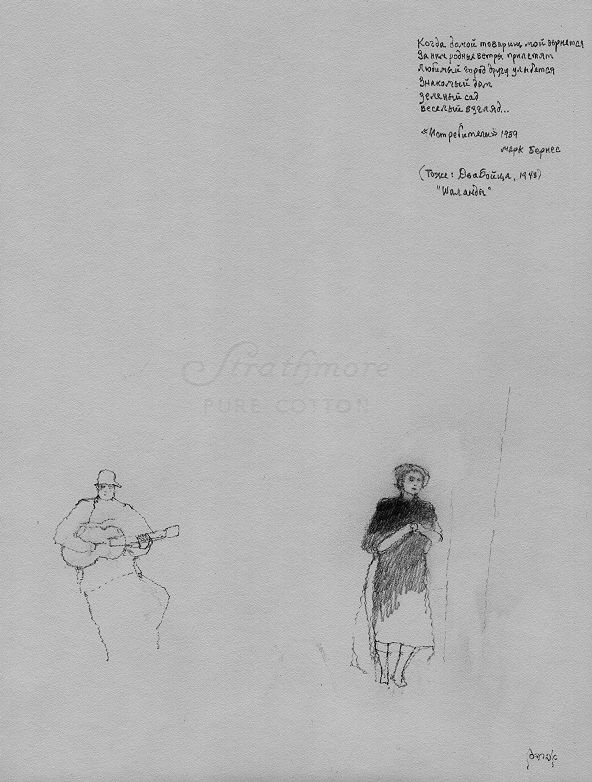 Когда домой товарищ мой вернется
За ним родные ветры прилетят
Любимый город другу улыбнется
Знакомый дом
зеленый сад
веселый взгляд...
«Истребители» 1939
марк Бернес
(Тоже: Два Бойца, 1943)
"Шаланды"
Strathmore
PURE COTTON